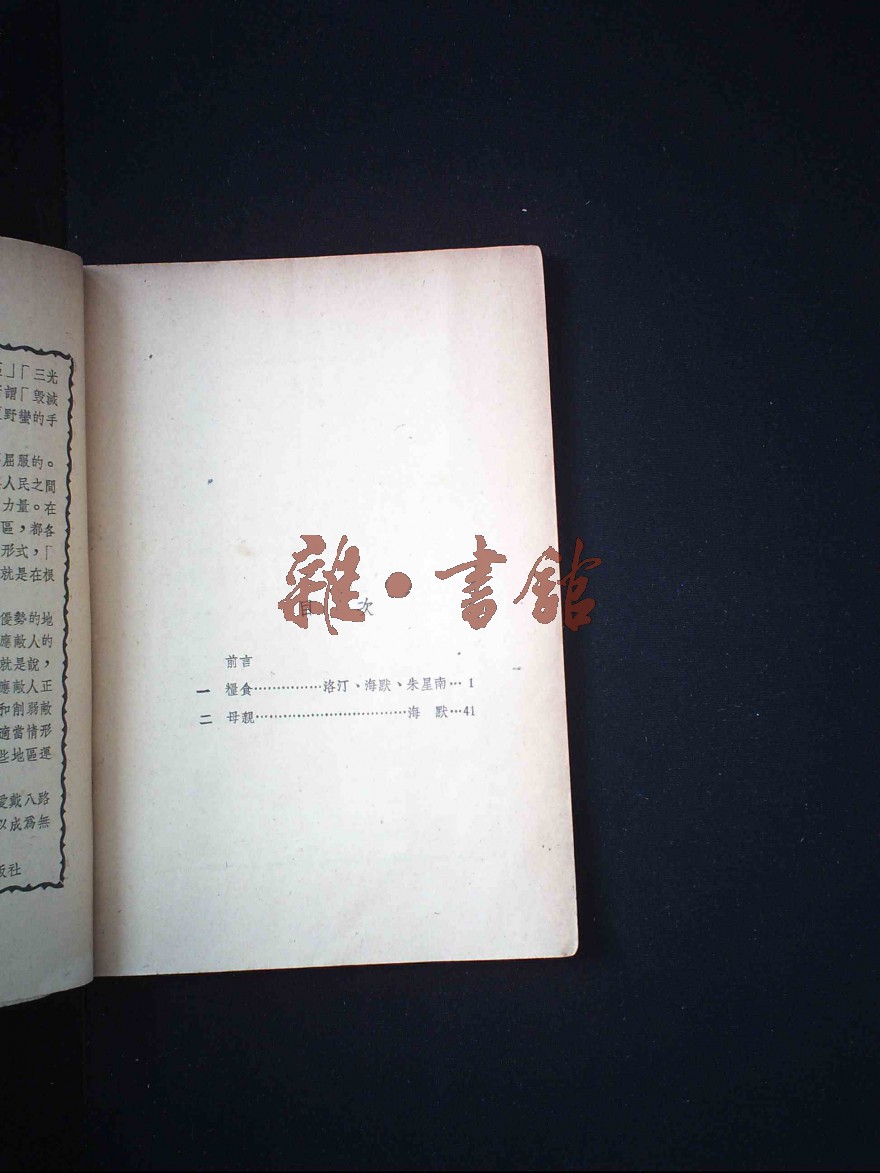 」「三光
謂「毀滅
野蠻的手
屈服的。
人民之間
力量。在
區，都各
形式，「
就是在根
優勢的地
應敵人的
就是說，
應敵人正
和削弱敵
適當情形
些地區運
愛戴八路
以成爲無
版社
雜·書館
目 次
前言
一 糧食……………洛汀、海默、朱星南…1
二 母親………………………………海 默…41